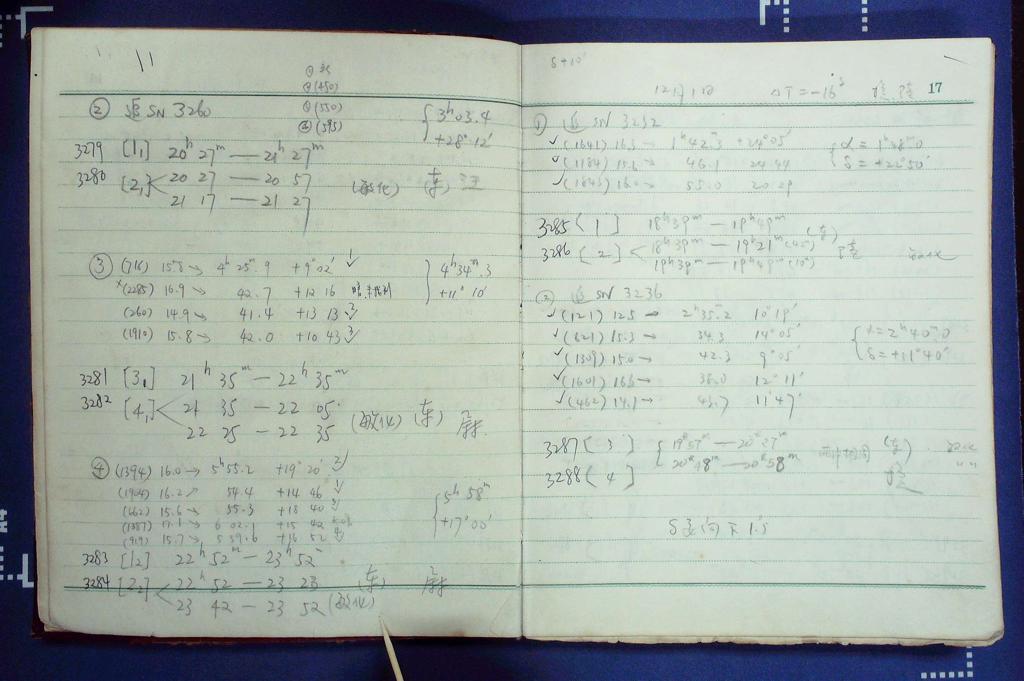 ② 追 SN 3260
① 
② (450)
③ (550)
④ (595)
3ʰ03.4
+28°12′
3279 [1₁] 20ʰ 27ᵐ — 21ʰ 27ᵐ
3280 [2₁] 20 27 — 20 57
21 17 — 21 27
(敏化) (东)
③ (716) 15.8 → 4ʰ 25ᵐ.9 +9°02′
(2285) 16.9 → 42.7 +12 16
(260) 14.9 → 41.4 +13 13
(1910) 15.8 → 42.0 +10 43
4ʰ34ᵐ.3
+11° 10′
3281 [3₁] 21ʰ 35ᵐ — 22ʰ 35ᵐ
3282 [4₁] 21 35 — 22 05
22 25 — 22 35
(敏化) (东)
④ (1394) 16.0 → 5ʰ55.2 +19°20′
(1904) 16.2 → 54.4 +14 46
(662) 15.6 → 55.3 +18 40
(1387) 17.1 → 6 02.1 +15 42
(919) 15.7 → 5 59.6 +16 52
5ʰ 58ᵐ
+17°00′
3283 [1₂] 22ʰ 52ᵐ — 23ʰ 52ᵐ
3284 [2₂] 22ʰ 52 — 23 23 (东)
23 42 — 23 52 (敏化)
δ+10′
12月1日 ΔT=−16ˢ 17
① 追 SN 3232
✓(1641) 16.3 → 1ʰ42.3 +24°05′
✓(1184) 15.6 → 46.1 24.44
✓(1843) 16.0 → 55.0 20.29
α = 1ʰ48ᵐ0
δ = +22°50′
3285 [1] 18ʰ39ᵐ — 19ʰ49ᵐ (东)
3286 [2] 18ʰ39ᵐ — 19ʰ21ᵐ
19ʰ39ᵐ — 19ʰ49ᵐ (10ᵐ)
② 追 SN 3236
✓(121) 12.5 → 2ʰ35.2 10°19′
✓(621) 15.3 → 34.3 14°05′
✓(1309) 15.0 → 42.3 9°05′
✓(1601) 16.3 → 38.0 12°11′
✓(462) 14.1 → 43.7 11°47′
α = 2ʰ40ᵐ0
δ = +11°40′
3287 [3] 19ʰ57ᵐ — 20ʰ27ᵐ (东)
3288 [4] 20ʰ48ᵐ — 20ʰ58ᵐ